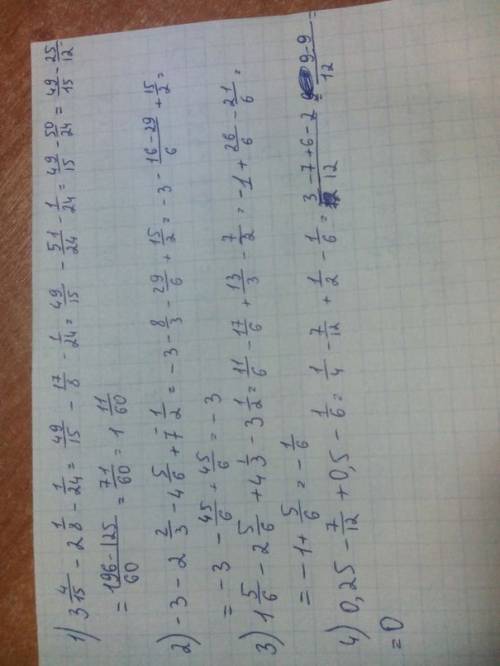 1) 3 4/15 - 2 1/8 - 1/24 = 49/15 - 17/8 - 1/24 = 49/15 - 51/24 - 1/24 = 49/15 - 50/24 = 49/15 - 25/12
= 196-125/60 = 71/60 = 1 11/60
2) -3 - 2 2/3 - 4 5/6 + 7 1/2 = -3 - 8/3 - 29/6 + 15/2 = -3 - 16-29/6 + 15/2 =
= -3 - 45/6 + 45/6 = -3
3) 1 5/6 - 2 5/6 + 4 1/3 - 3 1/2 = 11/6 - 17/6 + 13/3 - 7/2 = -1 + 26/6 - 21/6 =
= -1 + 5/6 = -1/6
4) 0,25 - 7/12 + 0,5 - 1/6 = 1/4 - 7/12 + 1/2 - 1/6 = 3-7+6-2/12 = 9-9/12 =
= 0